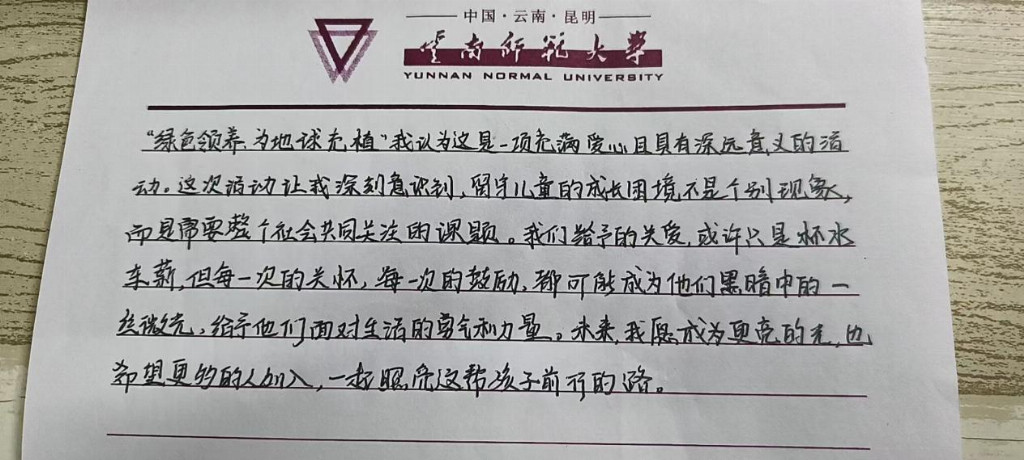 中国·云南·昆明
云南师范大学
YUNNAN NORMAL UNIVERSITY
“绿色领养,为地球充植”我认为这是一项充满爱心且具有深远意义的活
动。这次活动让我深刻意识到,留守儿童的成长困境不是个别现象,
而是需要整个社会共同关注的课题。我们给予的关爱,或许只是杯水
车薪,但每一次的关怀,每一次的鼓励,都可能成为他们黑暗中的一
丝微光,给予他们面对生活的勇气和力量。未来,我愿成为更亮的光,也
希望更多的人加入,一起照亮这帮孩子前行的路。